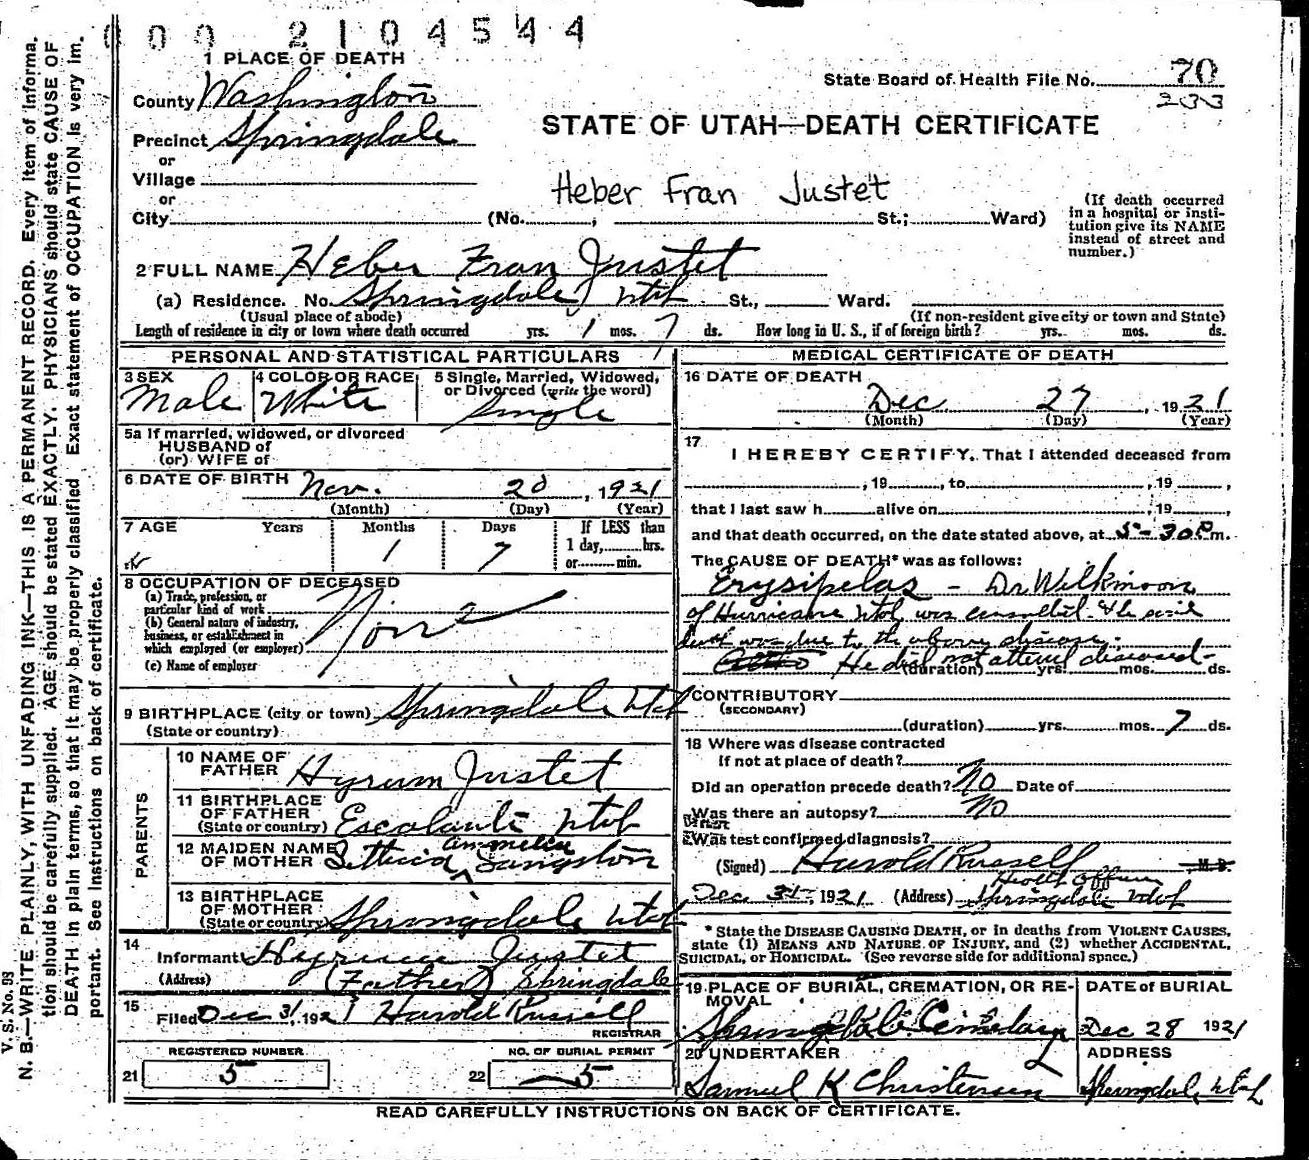 000 2104544
1 PLACE OF DEATH
State Board of Health File No. 70
233
County Washington
STATE OF UTAH—DEATH CERTIFICATE
Precinct Springdale
or
Village
or
Heber Fran Justet
City (No. , St.; Ward)
(If death occurred
in a hospital or insti-
tution give its NAME
instead of street and
number.)
2 FULL NAME Heber Fran Justet
(a) Residence. No. Springdale Utah St., Ward.
(Usual place of abode) (If non-resident give city or town and State)
Length of residence in city or town where death occurred yrs. 1 mos. 7 ds. How long in U. S., if of foreign birth? yrs. mos. ds.
PERSONAL AND STATISTICAL PARTICULARS
3 SEX Male
4 COLOR OR RACE White
5 Single, Married, Widowed,
or Divorced (write the word)
Single
5a If married, widowed, or divorced
HUSBAND of
(or) WIFE of
6 DATE OF BIRTH Nov. 20, 1921
(Month) (Day) (Year)
7 AGE Years Months Days If LESS than
1 7 1 day, hrs.
or min.
8 OCCUPATION OF DECEASED
(a) Trade, profession, or
particular kind of work
(b) General nature of industry,
business, or establishment in
which employed (or employer)
(c) Name of employer
None
9 BIRTHPLACE (city or town) Springdale Utah
(State or country)
PARENTS
10 NAME OF
FATHER Hyrum Justet
11 BIRTHPLACE
OF FATHER
(State or country) Escalante Utah
12 MAIDEN NAME
OF MOTHER Langston
13 BIRTHPLACE
OF MOTHER
(State or country) Springdale Utah
14
Informant Hyrum Justet
(Address) (Father) Springdale
15
Filed Dec 31, 1921 Harold Russell
REGISTRAR
REGISTERED NUMBER
21 5
NO. OF BURIAL PERMIT
22 5
MEDICAL CERTIFICATE OF DEATH
16 DATE OF DEATH
Dec 27, 1921
(Month) (Day) (Year)
17
I HEREBY CERTIFY, That I attended deceased from
, 19 , to , 19 ,
that I last saw h alive on , 19 ,
and that death occurred, on the date stated above, at 5-30 Pm.
The CAUSE OF DEATH* was as follows:
Erysipelas - Dr Wilkinson
of Hurricane Utah was consulted & he said
death was due to the above disease.
He did not attend diseased-
(duration) yrs. mos. ds.
CONTRIBUTORY
(SECONDARY)
(duration) yrs. mos. 7 ds.
18 Where was disease contracted
If not at place of death?
Did an operation precede death? No Date of
Was there an autopsy? No
Was test confirmed diagnosis?
(Signed) Harold Russell M. D.
Health Officer
Dec 31, 1921 (Address) Springdale Utah
* State the DISEASE CAUSING DEATH, or in deaths from VIOLENT CAUSES,
state (1) MEANS AND NATURE OF INJURY, and (2) whether ACCIDENTAL,
SUICIDAL, or HOMICIDAL. (See reverse side for additional space.)
19 PLACE OF BURIAL, CREMATION, OR RE-
MOVAL
Springdale Cemetary
DATE of BURIAL
Dec 28 1921
20 UNDERTAKER
Samuel K Christensen
ADDRESS
Springdale, Utah
READ CAREFULLY INSTRUCTIONS ON BACK OF CERTIFICATE.
V. S. No. 93
N. B.—WRITE PLAINLY, WITH UNFADING INK—THIS IS A PERMANENT RECORD. Every item of informa-
tion should be carefully supplied. AGE should be stated EXACTLY. PHYSICIANS should state CAUSE OF
DEATH in plain terms, so that it may be properly classified. Exact statement of OCCUPATION is very im-
portant. See instructions on back of certificate.